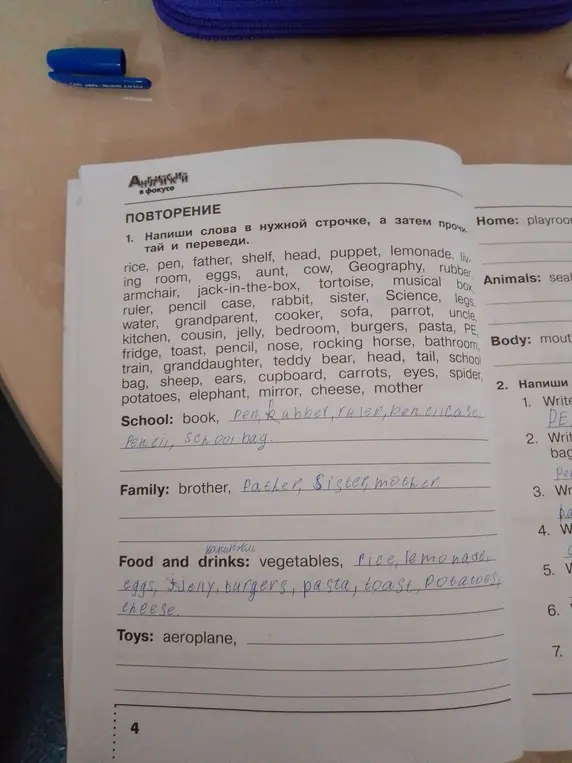 Английский
в фокусе
ПОВТОРЕНИЕ
1. Напиши слова в нужной строчке, а затем прочи-
тай и переведи.
rice, pen, father, shelf, head, puppet, lemonade, liv-
ing room, eggs, aunt, cow, Geography, rubber
armchair, jack-in-the-box, tortoise, musical box,
ruler, pencil case, rabbit, sister, Science, legs,
water, grandparent, cooker, sofa, parrot, uncle,
kitchen, cousin, jelly, bedroom, burgers, pasta, PE,
fridge, toast, pencil, nose, rocking horse, bathroom,
train, granddaughter, teddy bear, head, tail, school
bag, sheep, ears, cupboard, carrots, eyes, spider,
potatoes, elephant, mirror, cheese, mother
School: book, pen, Rubber, ruler, pencil case,
Pencil, school bag.
Family: brother, father, Sister, mother
напитки
Food and drinks: vegetables, rice, lemonade,
eggs, Jelly, burgers, pasta, toast, potatoes,
cheese.
Toys: aeroplane,
4
Home: playroo
Animals: sea
Body: mout
2. Напиши
1. Write
PE
2. Writ
bag
3. Wr
4. W
5. W
6.
7.